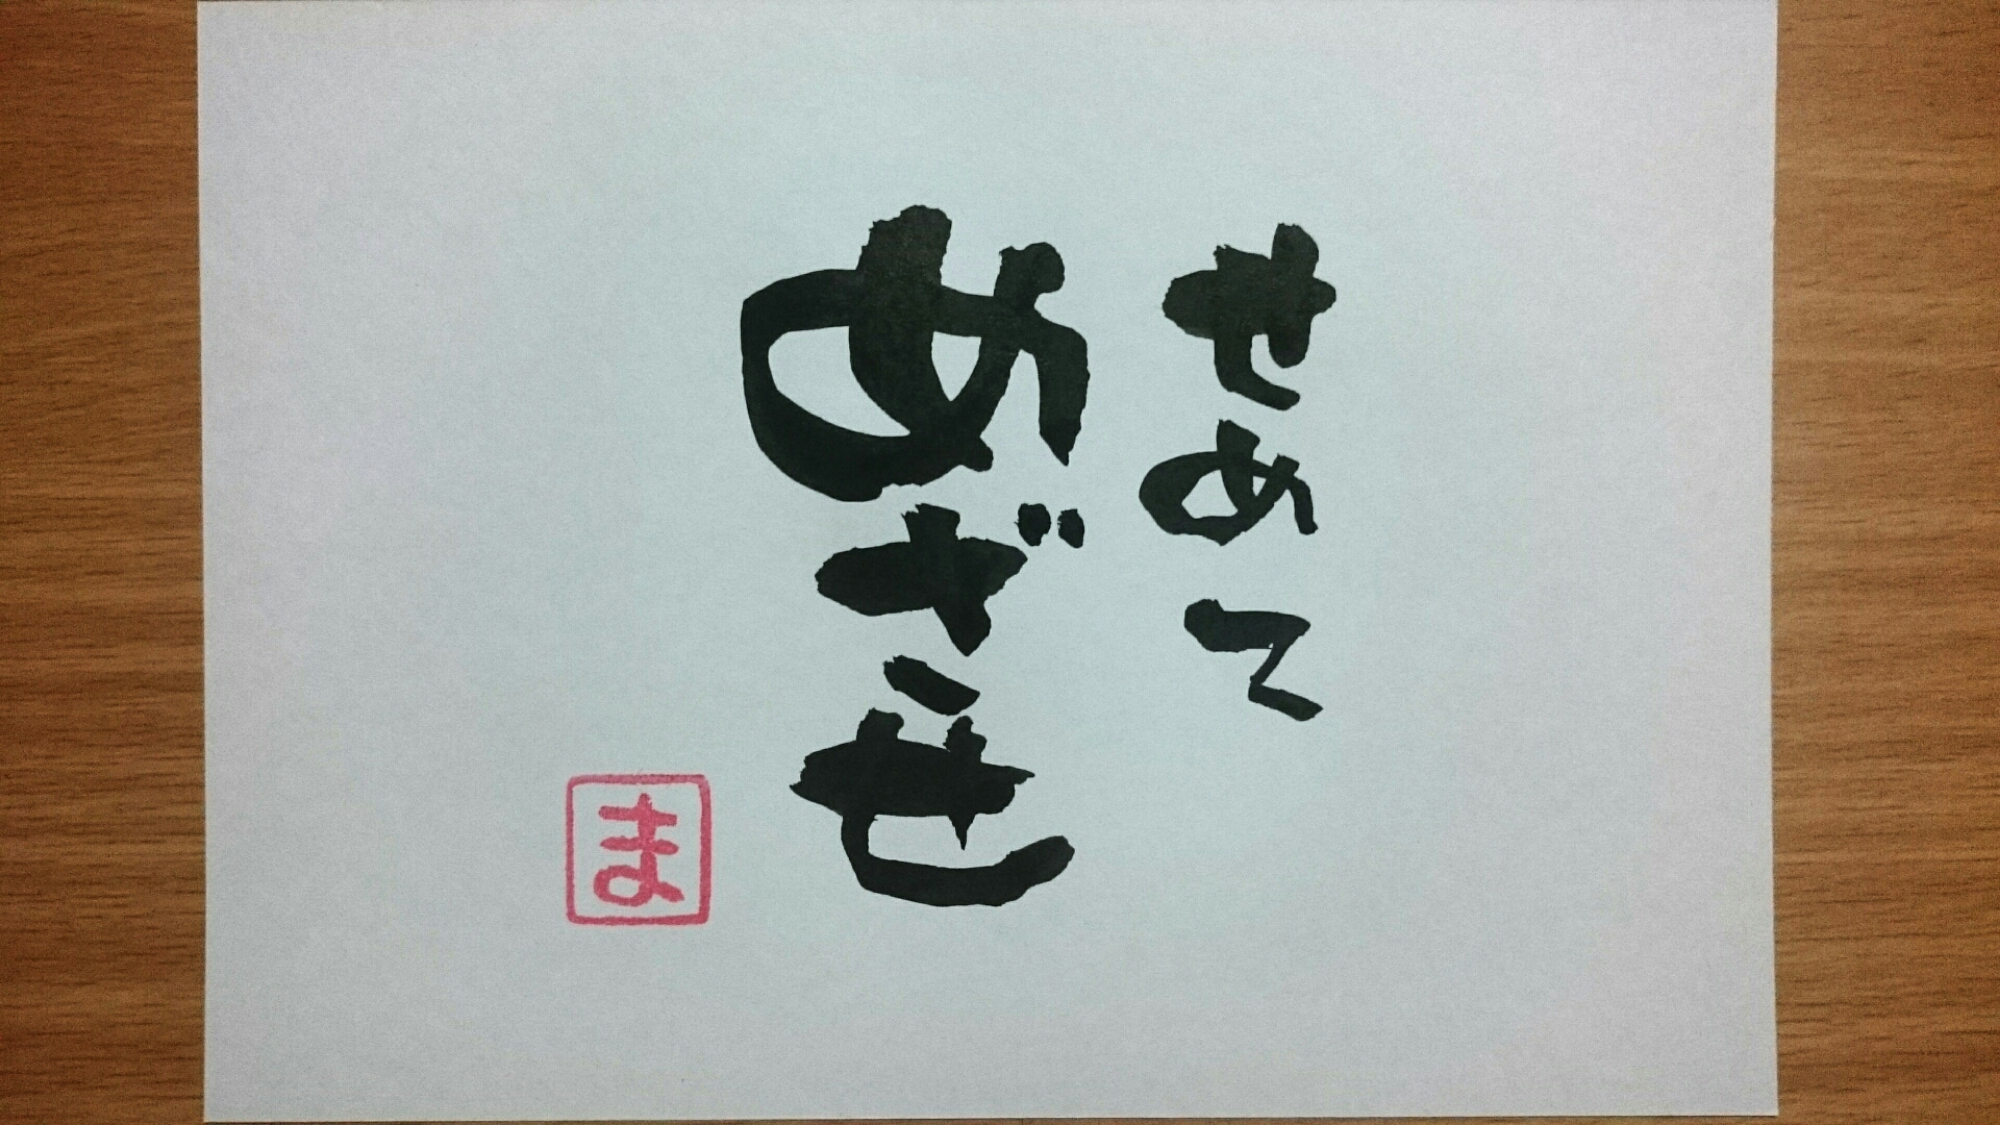 せめて
めざせ
ま